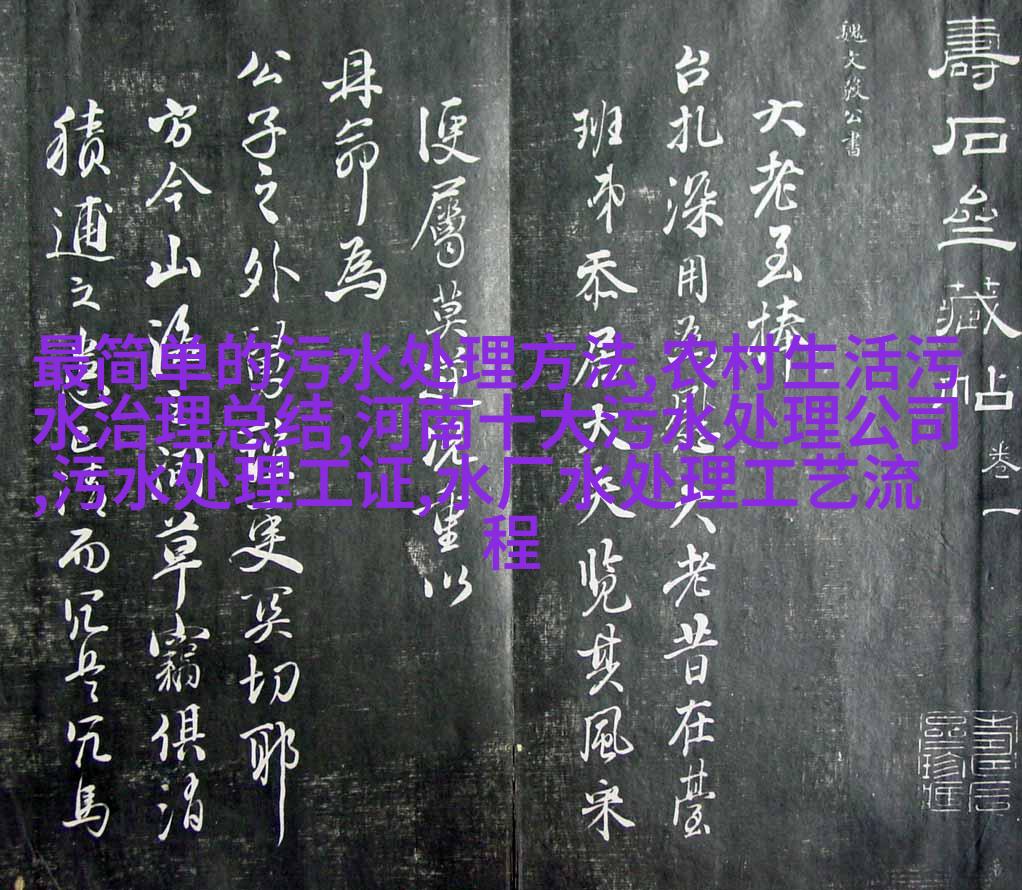 壽石亝藏帖
卷一
魏文毅公書
大老至捧
台扎深用 大老昔在臺
班弟忝居大夫覽其風采
便屬莫 重以
毋命為
公子之外 叟奚切耶
方今山 草竊俱消
積逋之 而冗兵冗馬
最简单的污水处理方法,农村生活污
水治理总结,河南十大污水处理公司
,污水处理工证,水厂水处理工艺流
程